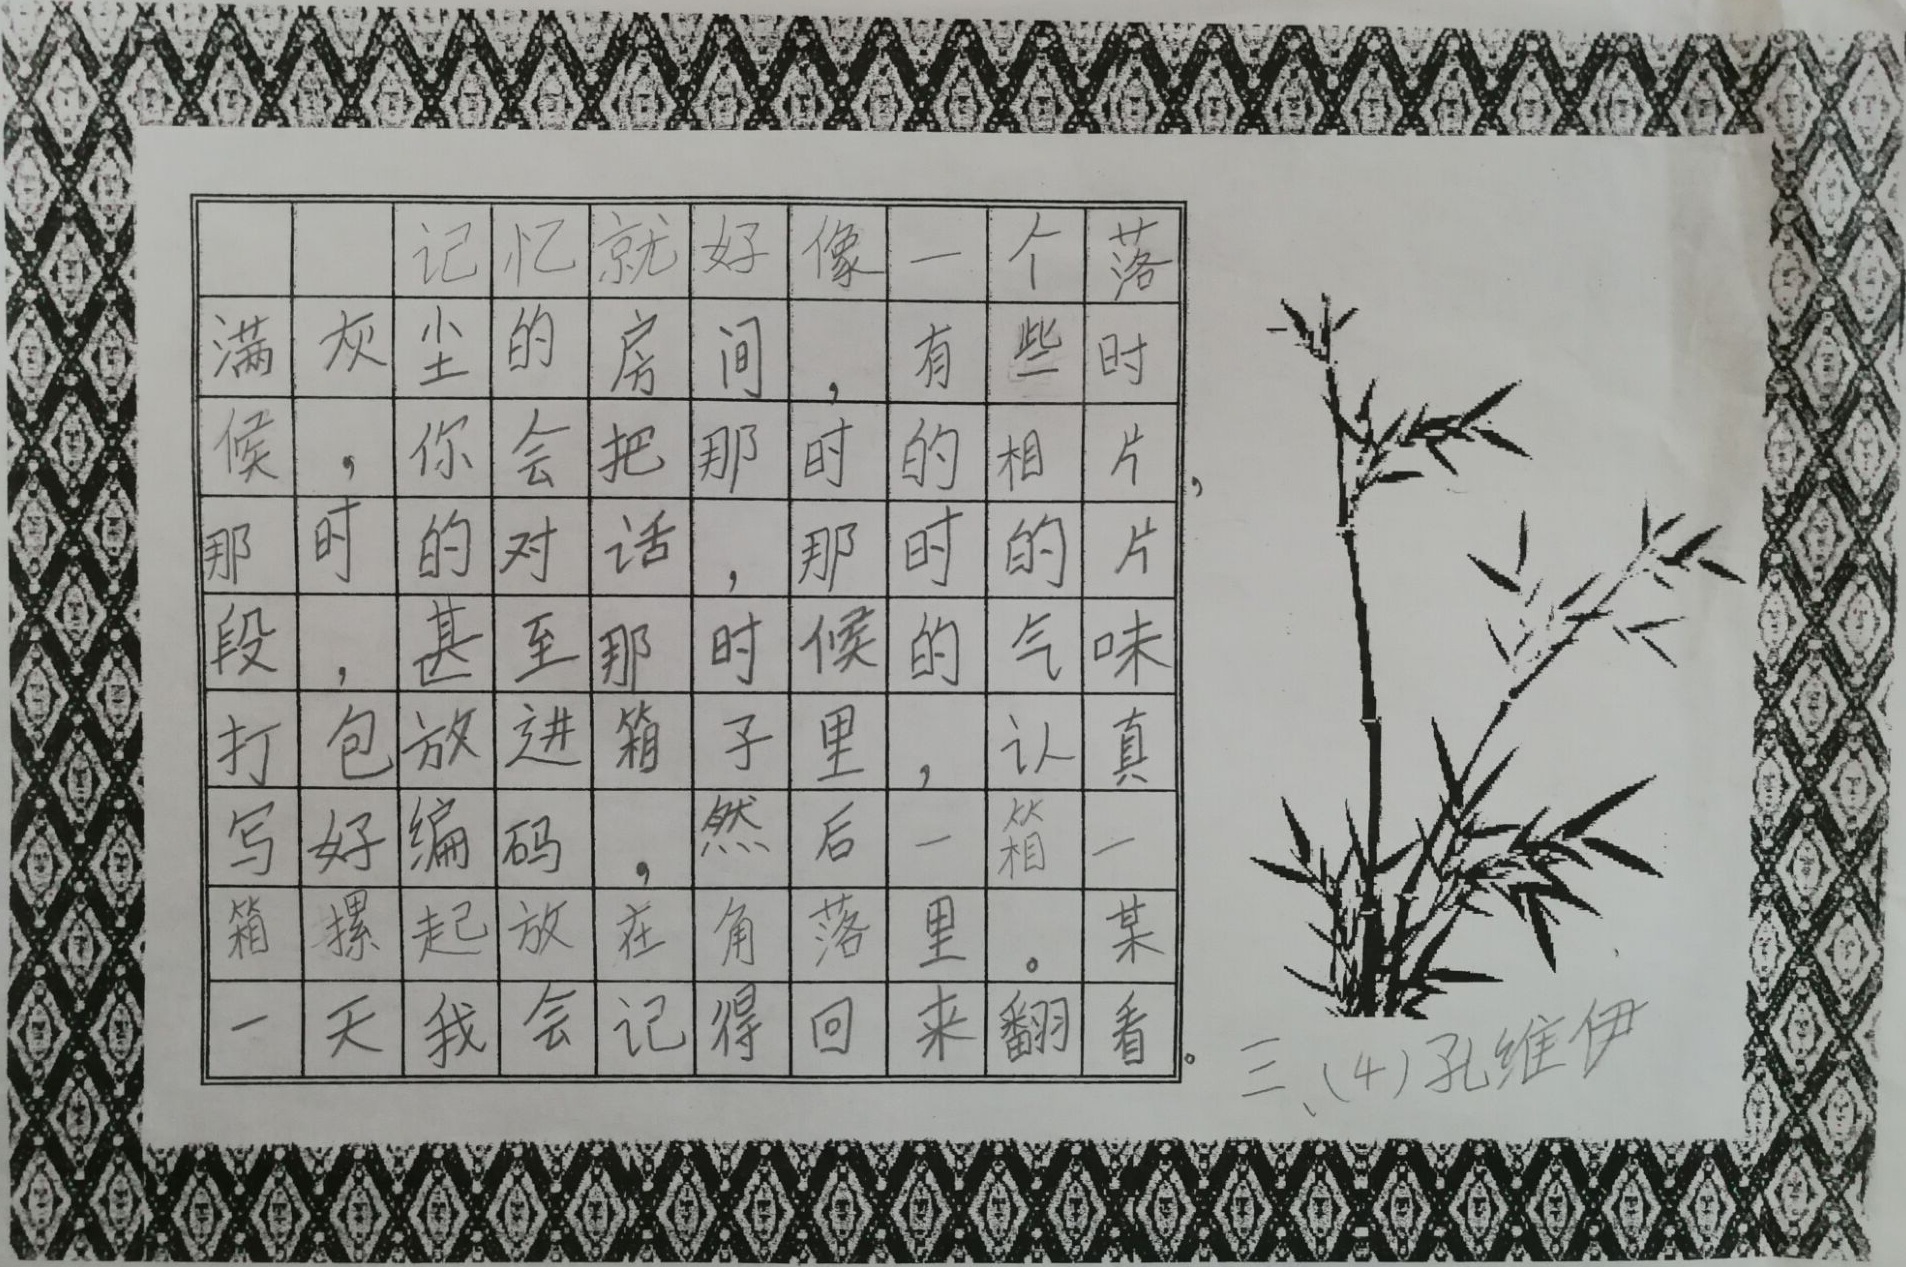 记忆就好像一个落
满灰尘的房间，有些时
候，你会把那时的相片，
那时的对话，那时的片
段，甚至那时候的气味
打包放进箱子里，认真
写好编码，然后一箱一
箱摞起放在角落里。某
一天我会记得回来翻看。
三、(4)孔维伊